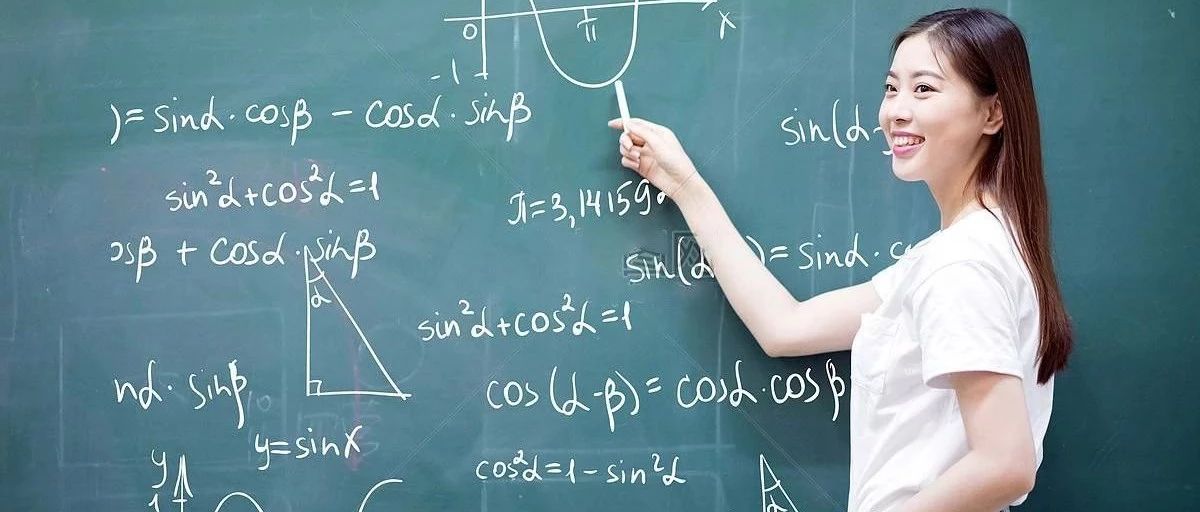 0 π x
-1
)= sinα·cosβ - cosα·sinβ
sin(α-
sin²α+cos²α=1
π=3,14159
osβ + cosα·sinβ
sin(α )= sinα·c
α
sin²α+cos²α=1
nα·sinβ
cos(α-β)= cosα·cosβ
y=sinx
cos²α=1-sin²α
y
1
α